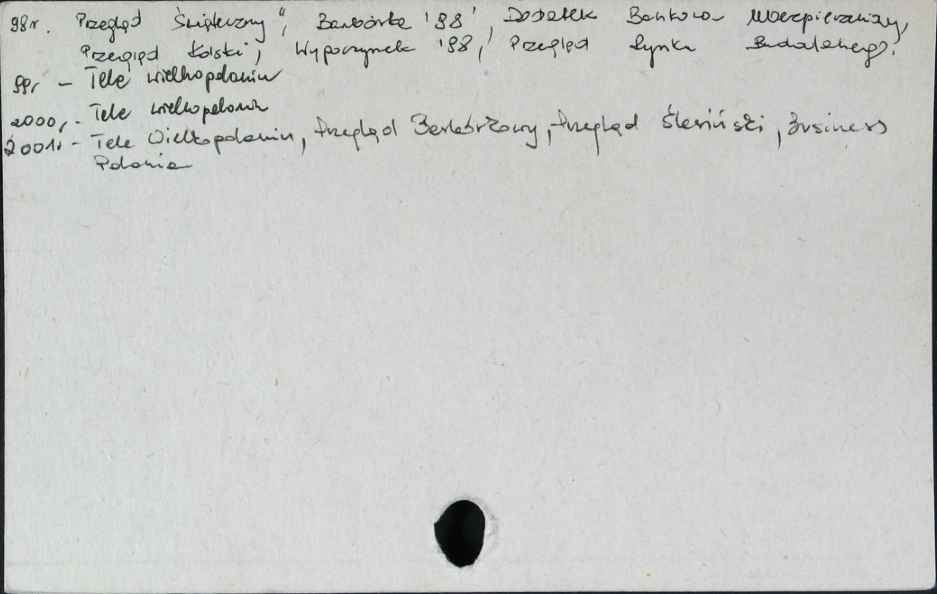 98r. Przegląd Świąteczny", Barbórka '98' Dodatek Bankowo Ubezpieczeniowy,
Przegląd Kolski, Wypoczynek '98, Przegląd Rynku Budowlanego.
99r - Tele Wielkopolanin
2000r. - Tele Wielkopolanin
2001r - Tele Wielkopolanin, Przegląd Barbórkowy, Przegląd Ślesiński, Business
Polonia